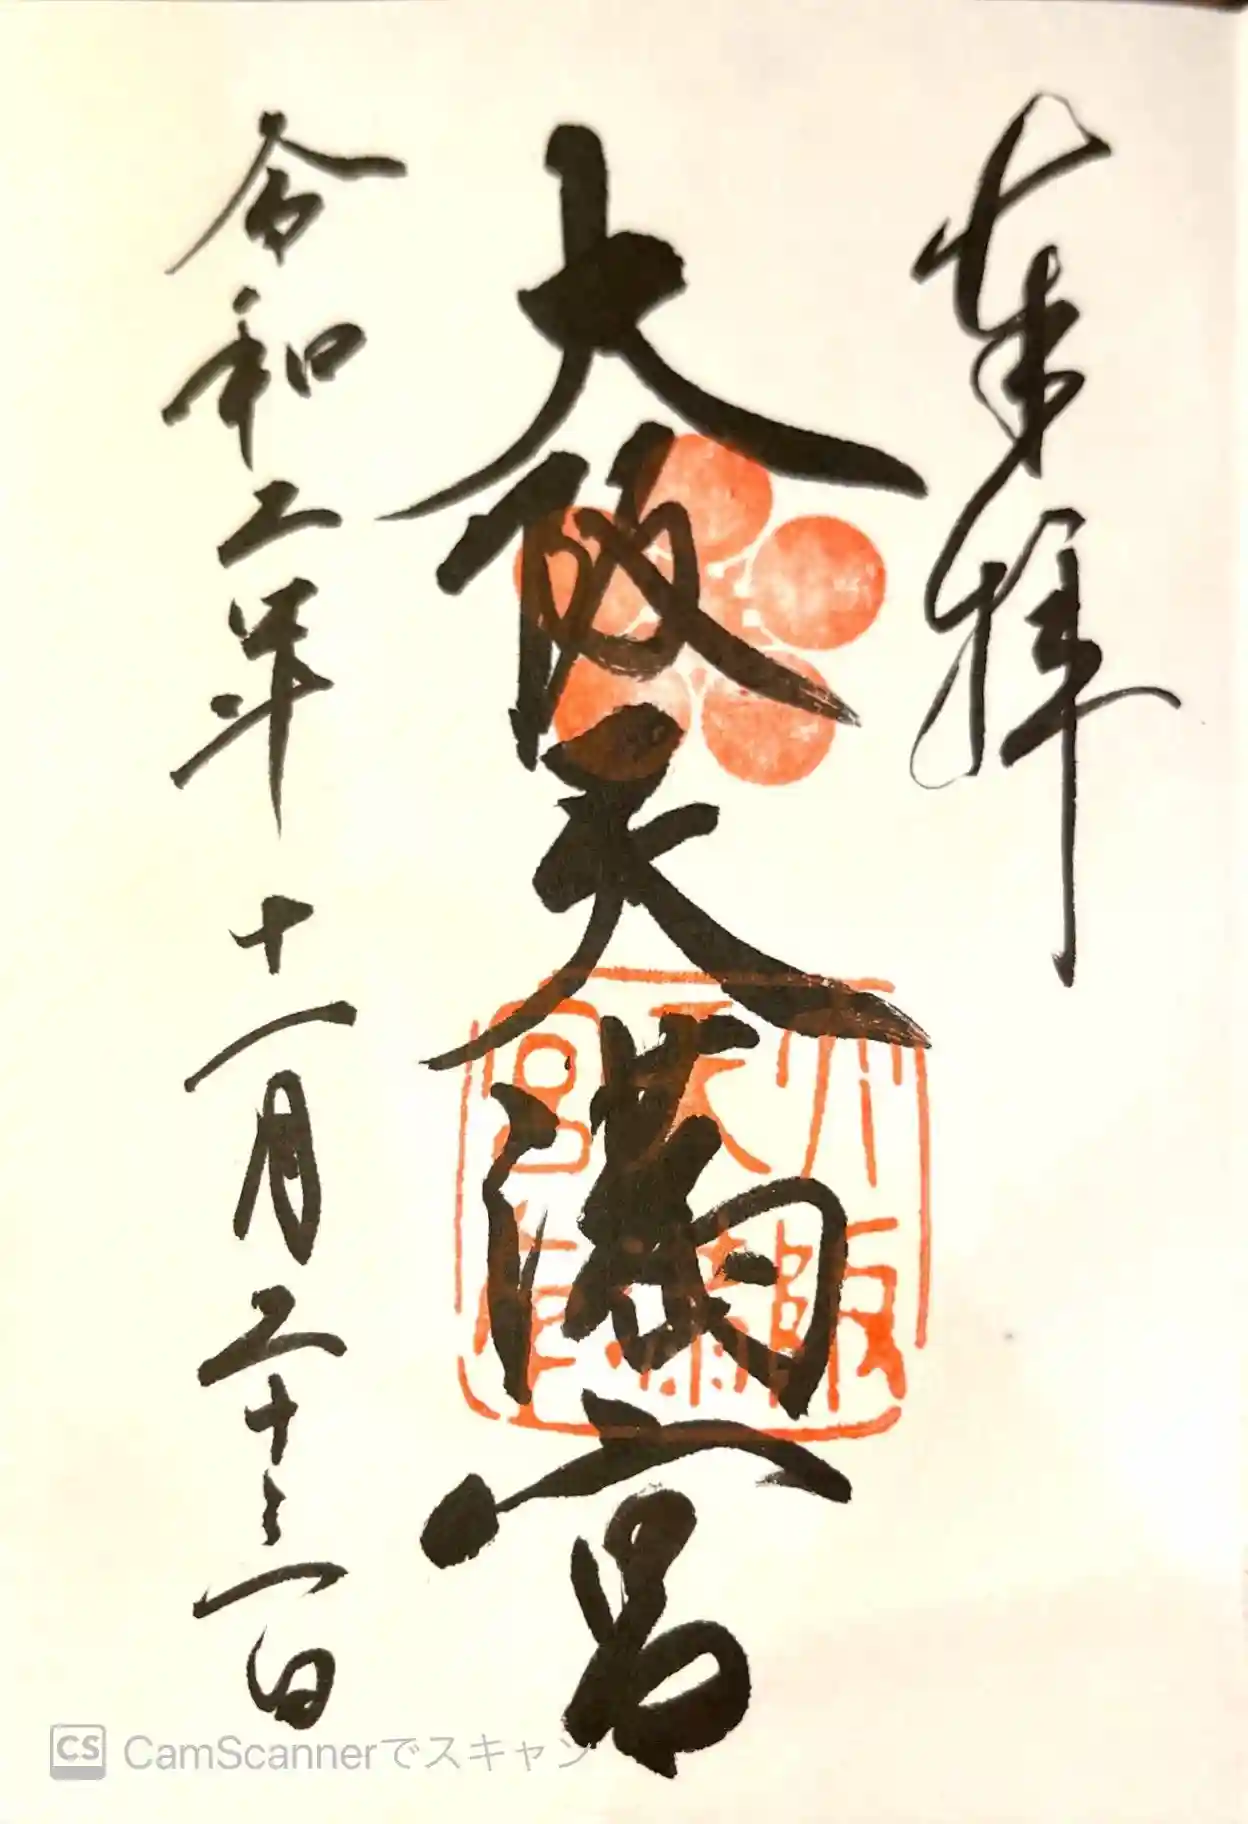 奉拝
大阪天満宮
令和二年十一月二十三日
大阪
天満
宮
CS CamScannerでスキャン